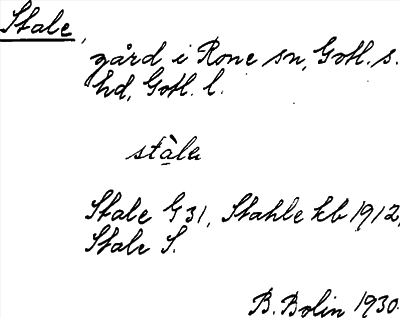 Stale,
gård i Rone sn, Gotl. s.
hd, Gotl. l.
stàla
Stale G 31, Stahle kb 1912,
Stale S.
B. Bolin 1930.